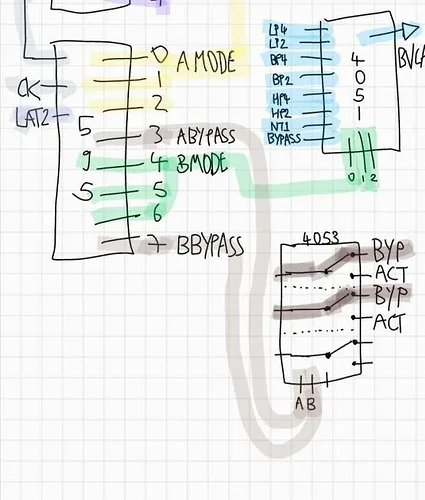 LP4
LP2
BP4
BP2
HP4
HP2
NT1
BYPASS
4
0
5
1
0 1 2
CK
LAT2
5
9
5
5
0 A MODE
1
2
3 ABYPASS
4 BMODE
5
6
7 BBYPASS
4053
BYP
ACT
BYP
ACT
A B